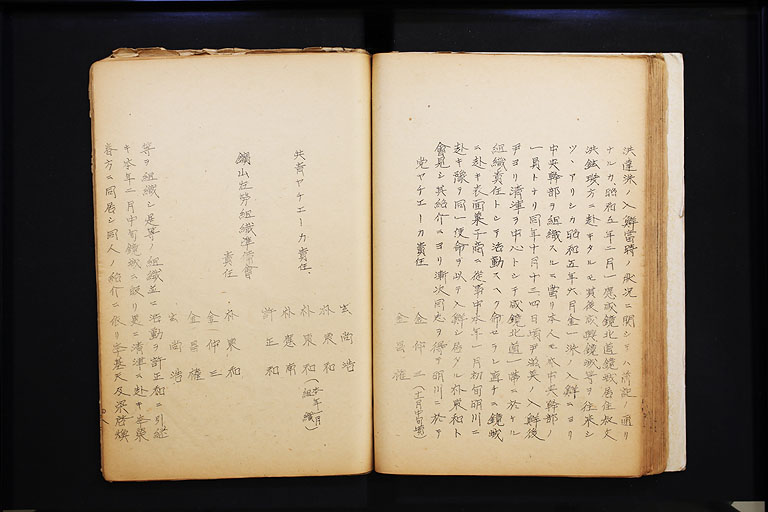 洪達洙ノ入鮮当時ノ状況ニ関シテハ前記ノ通リ
ナルカ昭和五年二月一応咸鏡北道鏡城居住叔父
洪鉉 方ニ赴キタルモ其後咸興鏡城等ヲ往来シ
ツヽアリシカ昭和五年六月金一洙ノ入鮮ニヨリ
中央幹部ヲ組織スルニ當リ本人モ亦中央幹部ノ
一員トナリ同年十月十三四日頃尹滋英ノ入鮮後
尹ヨリ清津ヲ中心トシテ咸鏡北道一帯ニ於ケル
組織責任トシテ活動スヘク命セラレ直チニ鏡城
ニ赴キ表面菓子商ニ從事中本年一月初旬明川ニ
赴キ豫テ同一使命ヲ以テ入鮮シ居タル朴東和ト
會見シ其紹介ニヨリ漸次同志ヲ得テ明川ニ於テ
党ヤチエーカ責任
金仲三(十一月中旬頃)
金昌權
共青ヤチエーカ責任
玄尚浩
朴東和
朴東和(本年一月組織)
朴應南
許正和
鑛山社労組織準備會
責任
朴東和
金仲三
金昌權
玄尚浩
等ヲ組織シ是等ノ組織並ニ活動ヲ許正和ニ引継
キ本年二月中旬鏡城ニ皈リ更ニ清津ニ赴キ李藥
春方ニ同居シ同人ノ紹介ニ依リ李基天及梁啓煥